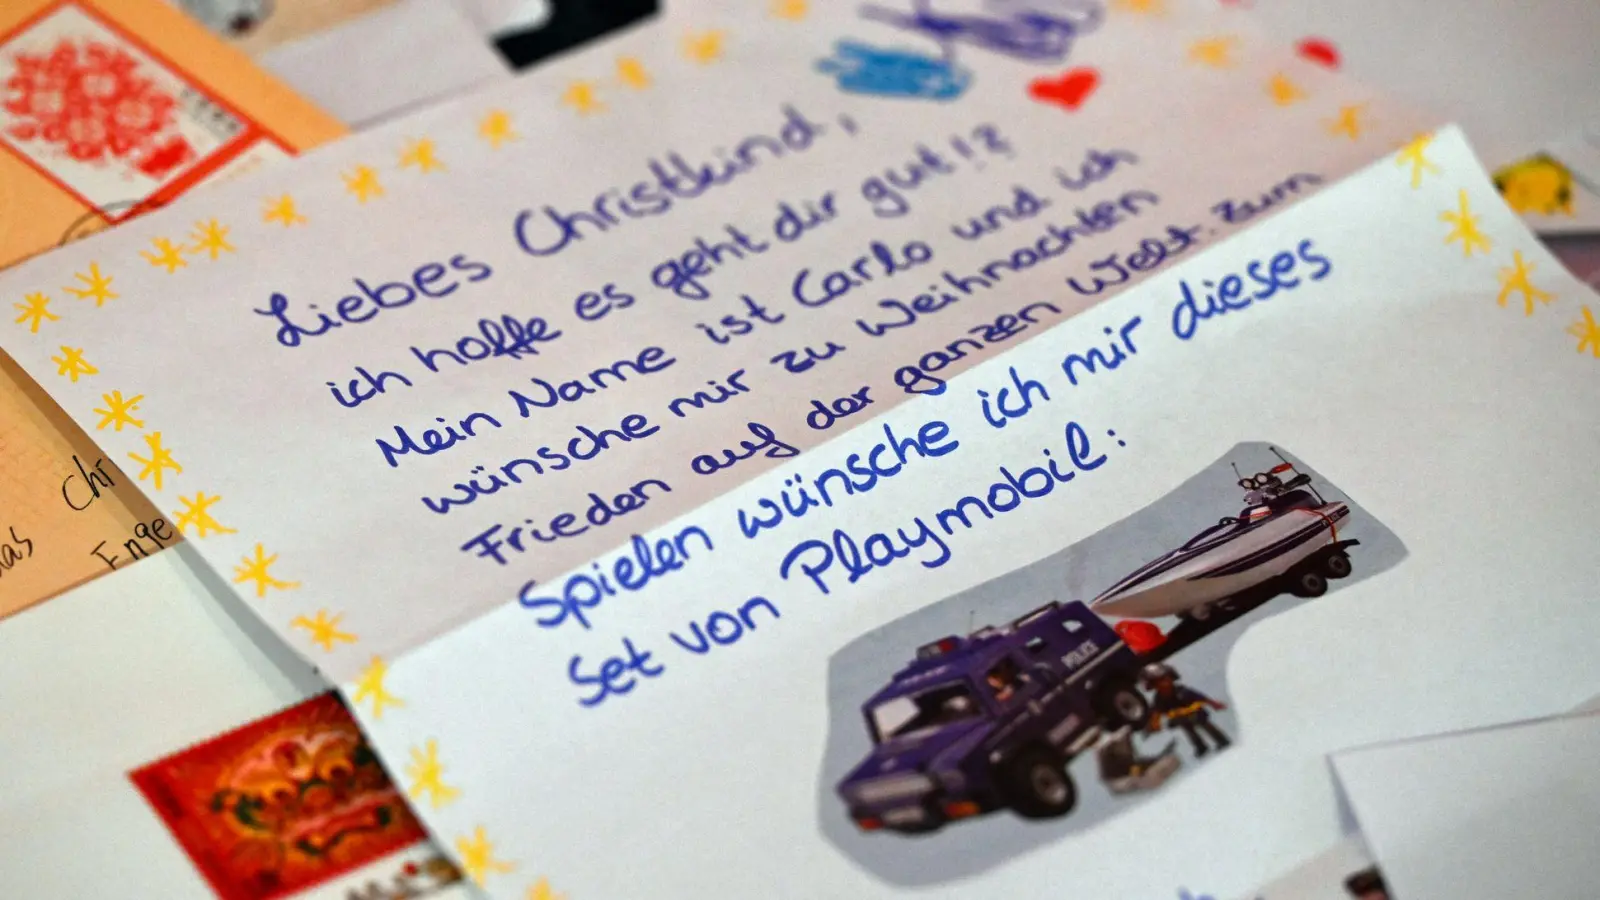 Liebes Christkind,
ich hoffe es geht dir gut!?
Mein Name ist Carlo und ich
wünsche mir zu Weihnachten
Frieden auf der ganzen Welt. Zum
Spielen wünsche ich mir dieses
Set von Playmobil:
POLICE
Chr
Enge